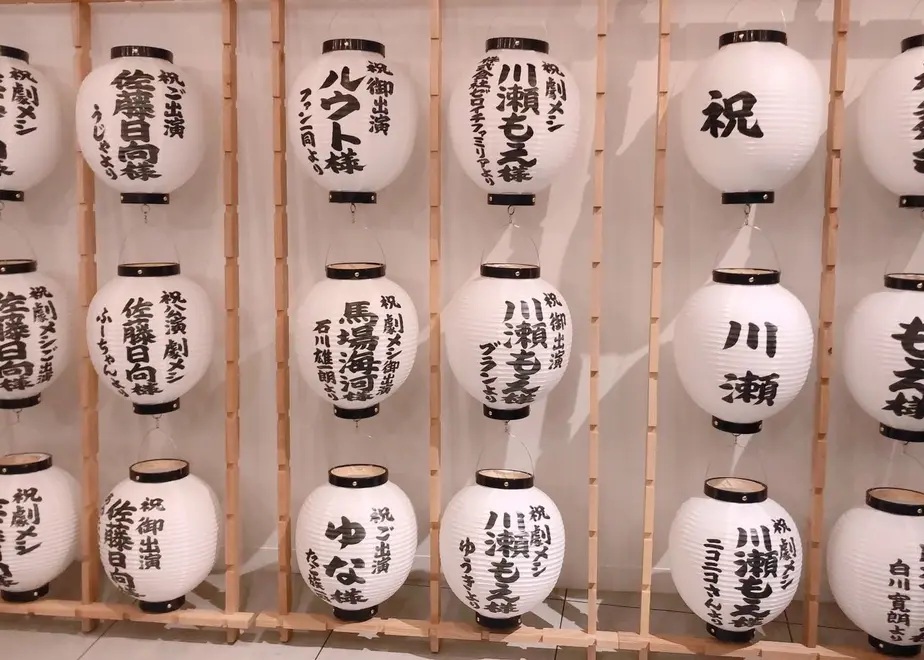 祝劇メシ
祝ご出演
佐藤日向様
うじゃより
祝御出演
ルウト様
ファン一同より
祝劇メシ
川瀬もえ様
株式会社ゼロイチファミリアより
祝
祝劇メシご出演
佐藤日向様
祝公演 劇メシ
佐藤日向様
ふーちゃんより
祝劇メシ御出演
馬場海河様
石川雄一朗より
祝御出演
川瀬もえ様
川
瀬
もえ様
祝劇メシ
祝御出演
佐藤日向
祝ご出演
ゆな様
祝劇メシ
川瀬もえ様
ゆうきより
祝劇メシ
川瀬もえ様
ニコニコさんより
白川寛朗より